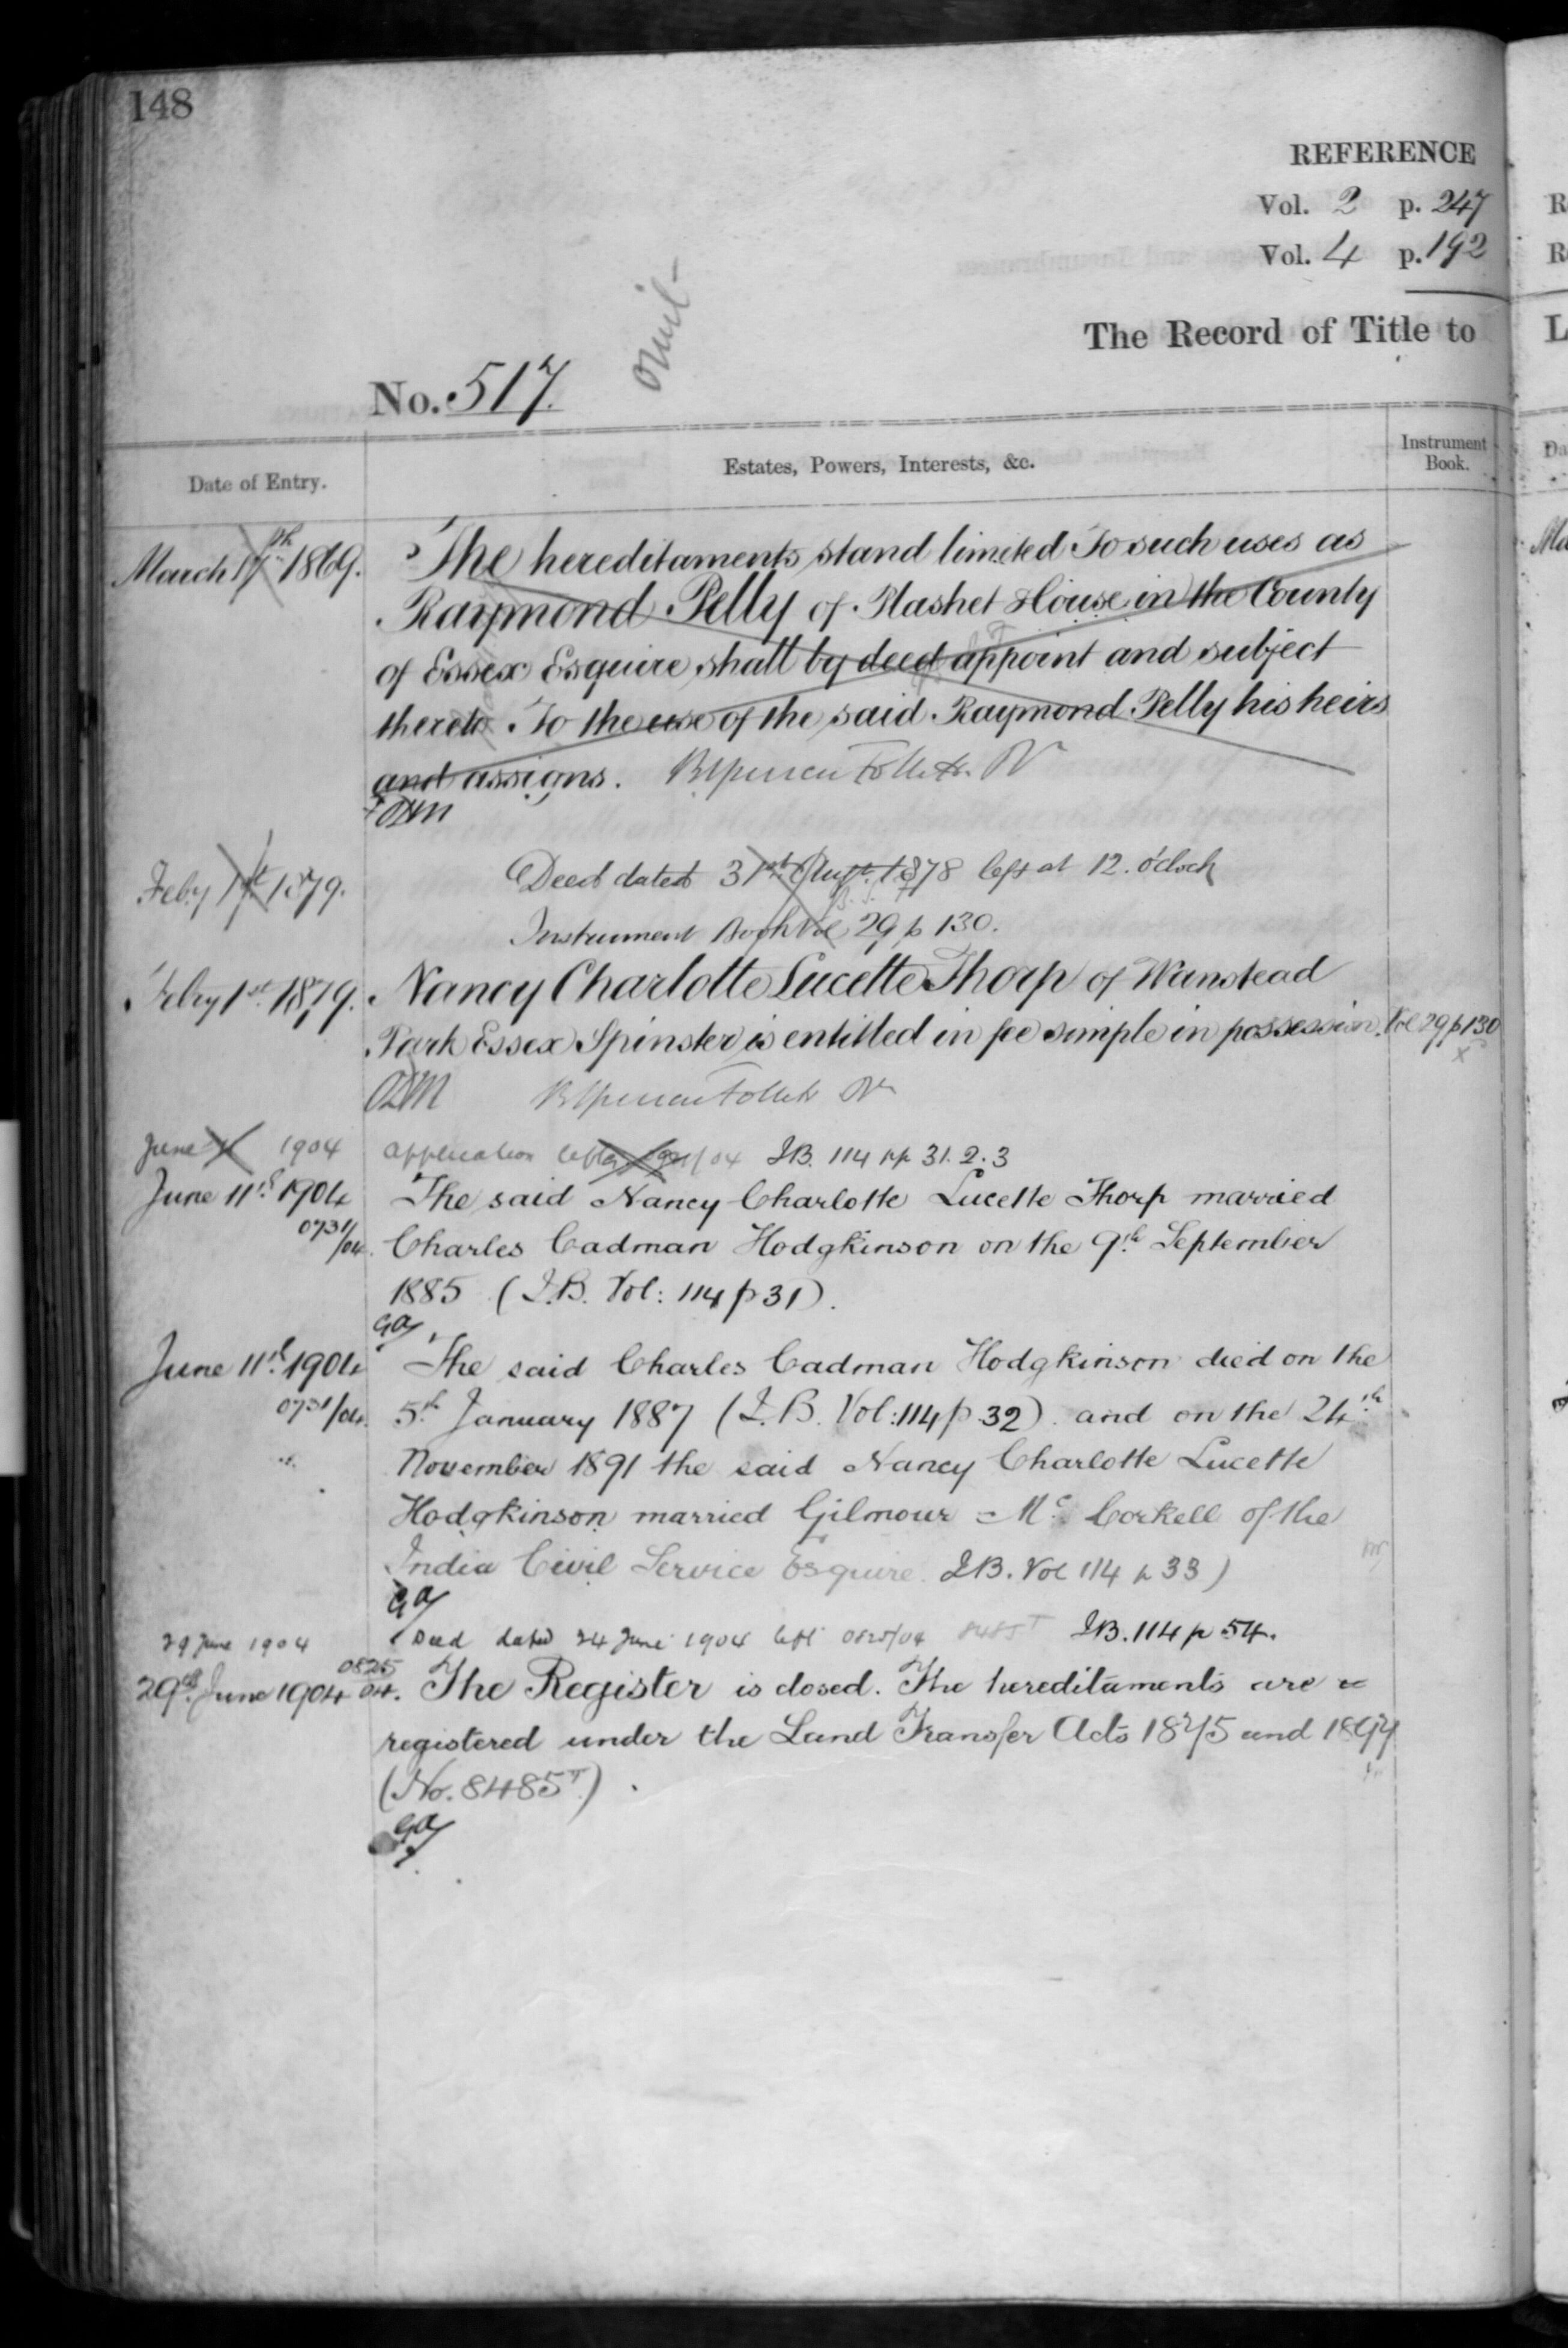 148
REFERENCE
Vol. 2 p. 247
Vol. 4 p. 192
The Record of Title to
No. 517.
omit
Date of Entry.
Estates, Powers, Interests, &c.
Instrument Book.
March 17th 1869. The hereditaments stand limited To such uses as
Raymond Pelly of Plashet House in the County
of Essex Esquire shall by deed appoint and subject
thereto To the use of the said Raymond Pelly his heirs
and assigns.
Feby 1st 1879. Deed dated 31st 1878 left at 12. o'clock
Instrument Book Vol 29 p 130.
Feby 1st 1879. Nancy Charlotte Lucette Thorp of Wanstead
Park Essex Spinster is entitled in fee simple in possession. Vol 29 p 130
June 1904 application left /04 I.B. 114 pp 31. 2. 3
June 11th 1904 The said Nancy Charlotte Lucette Thorp married
0731/04. Charles Cadman Hodgkinson on the 9th September
1885 (I.B. Vol: 114 p 31).
GA
June 11th 1904 The said Charles Cadman Hodgkinson died on the
0731/04. 5th January 1887 (I.B. Vol: 114 p 32) and on the 24th
November 1891 the said Nancy Charlotte Lucette
Hodgkinson married Gilmour Mc Corkell of the
India Civil Service Esquire. I.B. Vol 114 p 33)
GA
29 June 1904 Deed dated 24 June 1904 left 0825/04 8485T I.B. 114 p 54.
29th June 1904 0825/04. The Register is closed. The hereditaments are
registered under the Land Transfer Acts 1875 and 1897
(No. 8485T).
GA